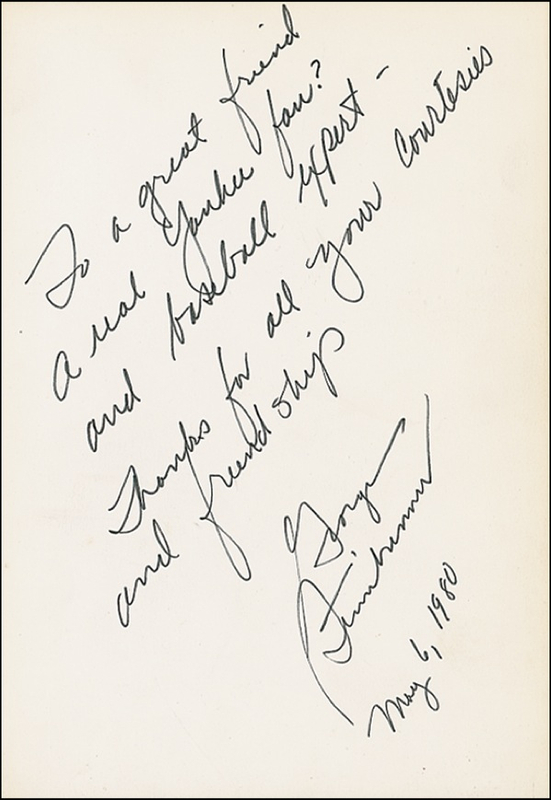 To a great friend
a real Yankee fan?
and baseball expert -
Thanks for all your courtesies
and friendship
George
Steinbrenner
May 6, 1980